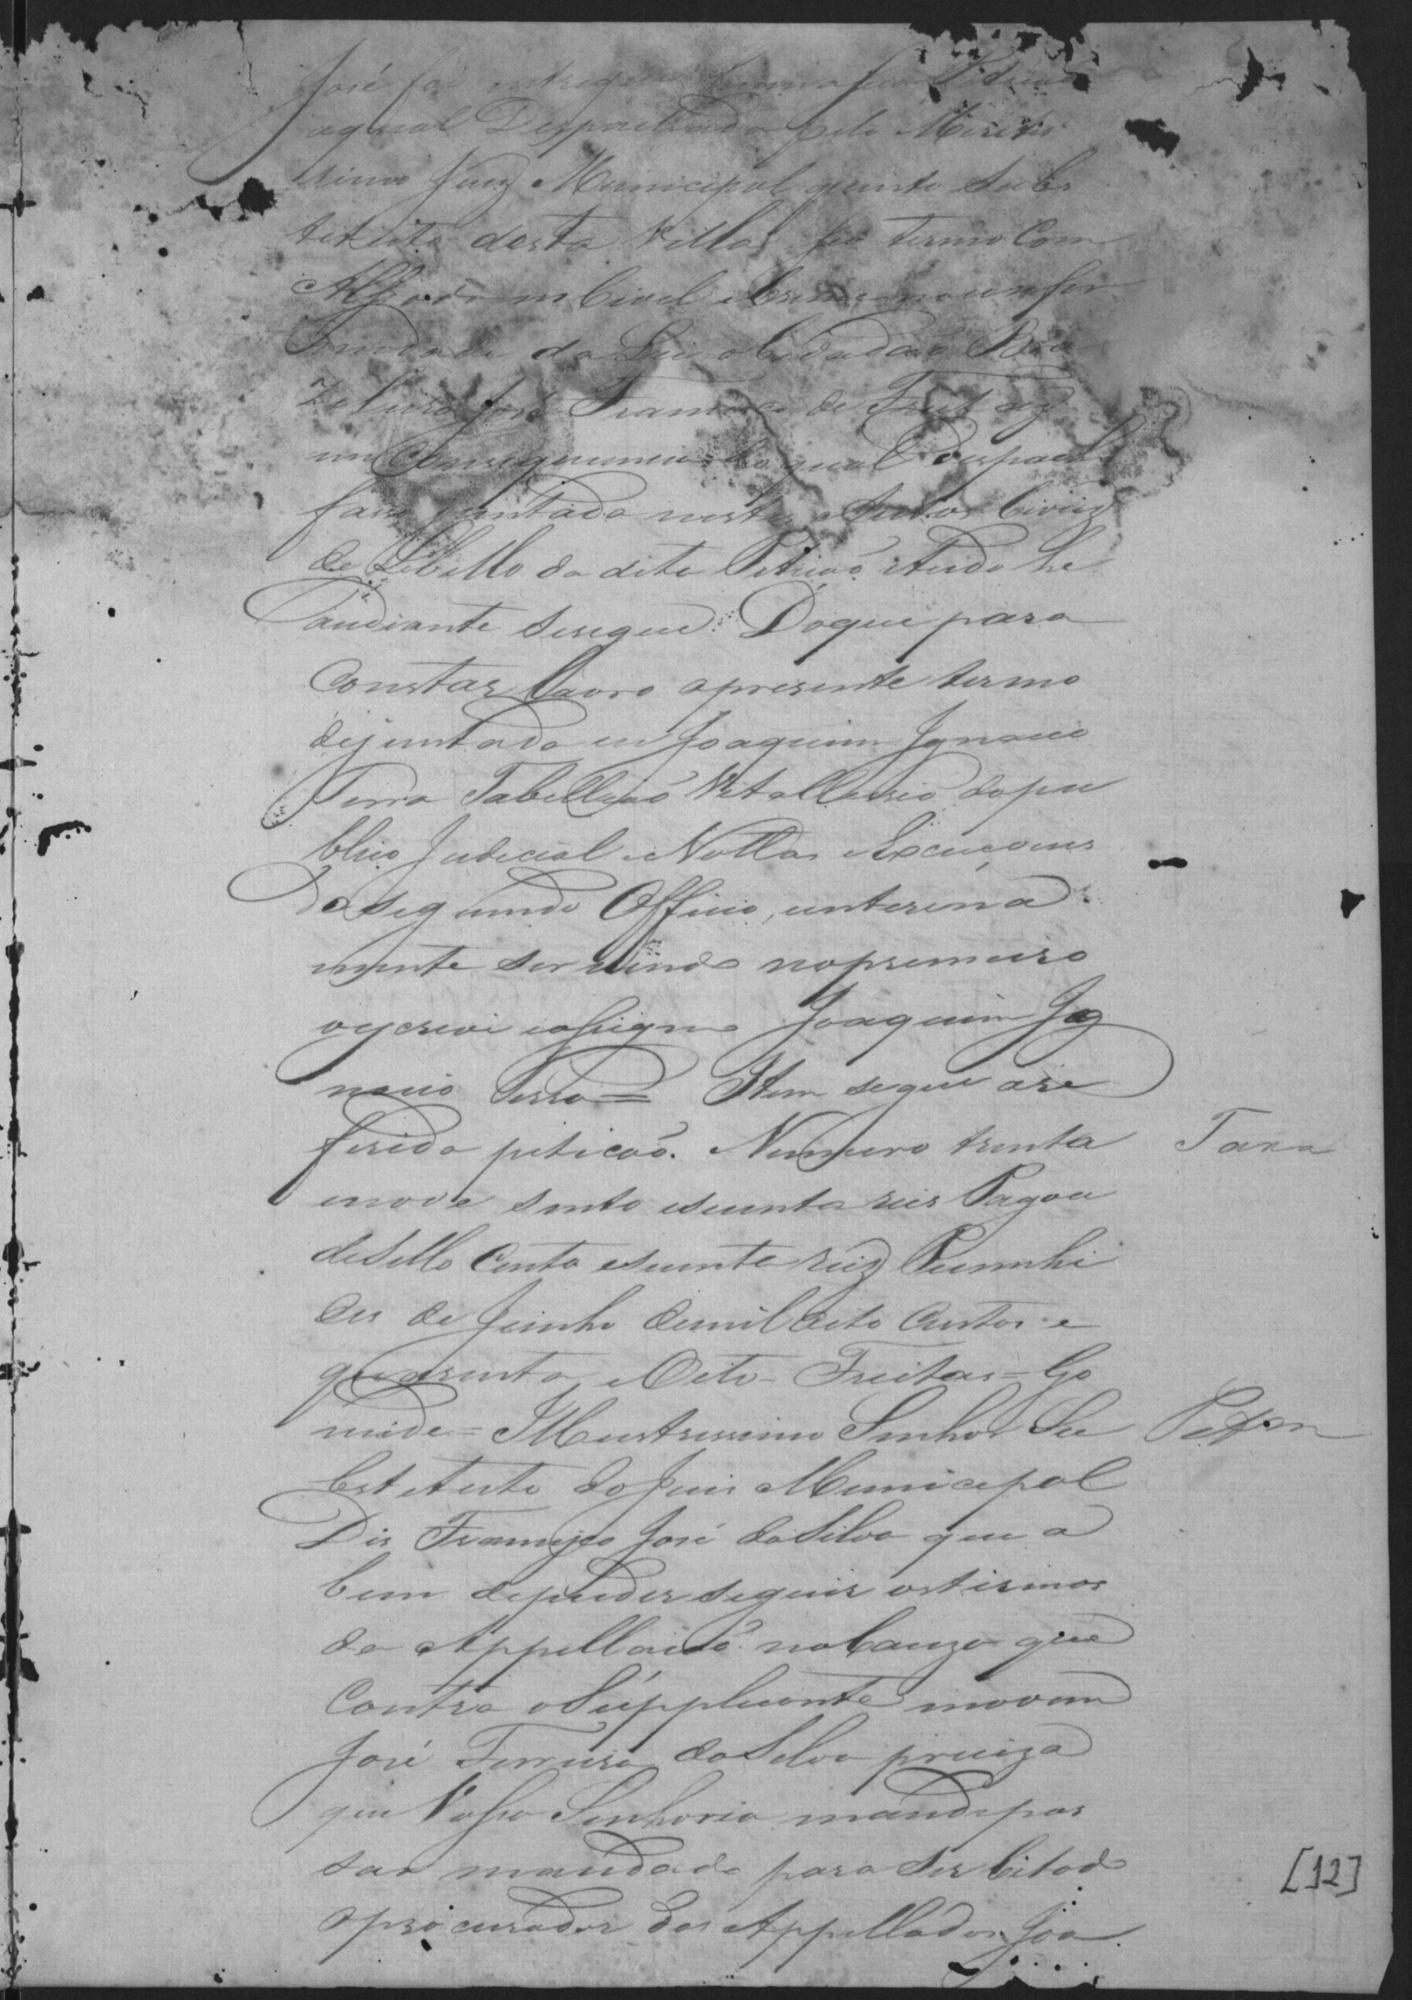 José foi entregue huma
aqual Despachada pelo Meretis
simo Juiz Municipal quinto Subs
tetuito desta Villa seo termo Com
Alçada no Civel eCrime naconfor
midade da Lei oCidadaõ Bra
Zileiro José Francisco de Freitas
em Consequencia doqual Despacho
faço juntada nestes Autos Civeis
de Libello da dita Petiçaõ etudo he
audiante Sesegue. Doque para
Constar lavro opresente termo
dejuntada eu Joaquim Ignacio
Terra Tabelliaõ Vitallicio dopu
blico Judicial eNottas eExcuçoens
do segundo Officio, enterina
mente servindo nopremeiro
oescrevi easigno Joaquim Ig
nacio Terra = Item segue are
ferida peticaõ. Numero trinta
Taxa
enove sento esecenta reis Pagou
deSello Cento esecenta reis Piumhi
des de Junho demil oito Centos e
quarenta eOito - Freitas = Go
mide = Illustrissimo Senhor Su
Petₐₘ
bstetuto do Juis Municipal
Dis Francisco José daSilva que a
bem depuder seguir ostermos
da Appellacaõ naCauza que
Contra oSuppluicante movem
José Ferreira daSilva preciza
que Vossa Senhoria mande pas
sar mandado para ser Citado
oprocurador dos Appellados Joa
[12]